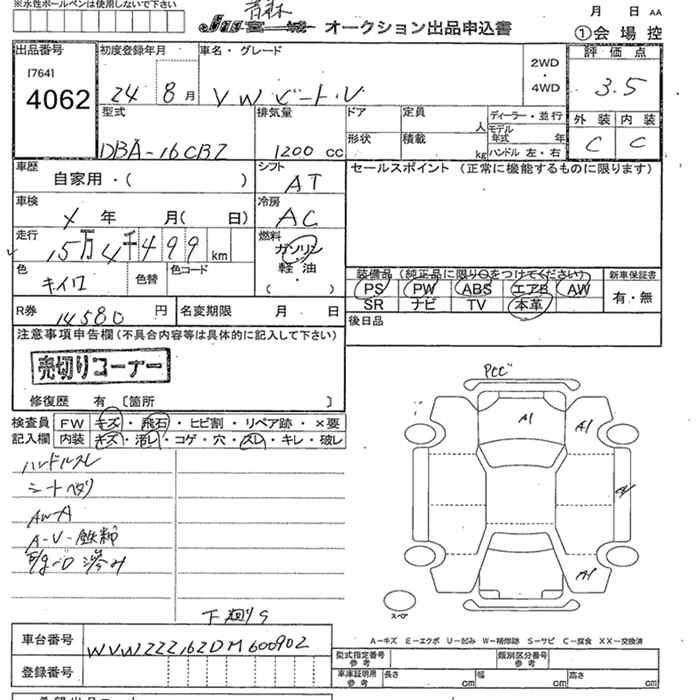 ※水性ボールペンは使用しないで下さい
青森
宮城 オークション出品申込書
月 日 AA
①会場控
出品番号
[7641
4062
初度登録年月
24 8月
車名・グレード
VW ビートル
2WD
・
4WD
評価点
3.5
外装 内装
C C
型式
DBA-16CBZ
排気量
1200 cc
ドア
形状
定員
人
積載
kg
ディーラー・並行
モデル年式 年
ハンドル 左・右
車歴
自家用・( )
シフト
AT
セールスポイント (正常に機能するものに限ります)
車検
メ 年 月( 日)
冷房
AC
走行
15万4千499 km
燃料
ガソリン
軽油
( ・ )
色
キイロ
色替
色コード
装備品(純正品に限り○をつけてください)
PS PW ABS エアB AW
SR ナビ TV 本革
新車保証書
有・無
R券
14580 円
名変期限 月 日
後日品
注意事項申告欄(不具合内容等は具体的に記入して下さい)
売切りコーナー
修復歴 有 〔箇所 〕
検査員
記入欄
FW キズ・飛石・ヒビ割・リペア跡・×要
内装 キズ・汚レ・コゲ・穴・スレ・キレ・破レ
ハンドルスレ
シートヘタリ
AW-A
A-V-鉄粉
E/g-O 滲み
下廻りS
A1
A1
A1
スペア
車台番号
WVWZZZ16ZDM600902
登録番号
A-キズ E-エクボ U-凹み W-補修跡 S-サビ C-腐食 XX-交換済
型式指定番号
参考
類別区分番号
参考
車庫証明用
参考
長さ cm 幅 cm 高さ cm